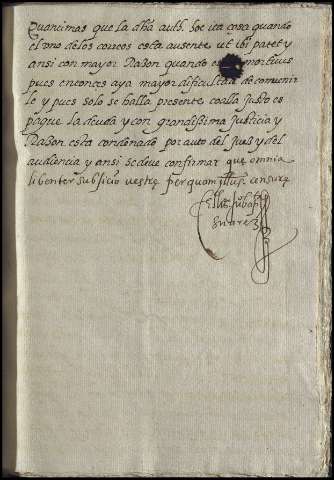 que la dha aud.
el uno de los correos esta ausente ut ibi patet y
ansi con mayor Rason quando es mortuus
pues entonces aya mayor dificultad de convenir
le y pues solo se halla presente coalla justo es
pague la deuda y con grandissima Justicia y
Rason esta condenado por auto del Juez y del
audiencia y ansi se deve confirmar que omnia
libenter subficio vestre per quam Illus. censure